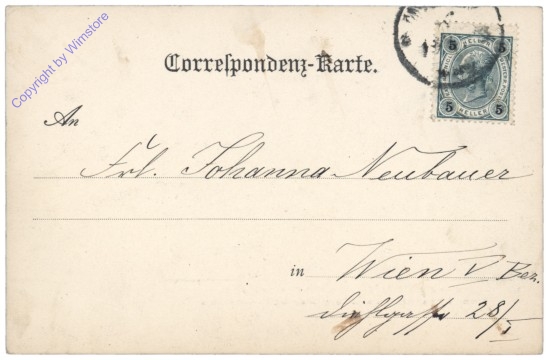 Copyright by Wimstore
Correspondenz-Karte.
5 5
HELLER
5 5
An
Frl. Johanna Neubauer
in Wien V Bez.
28/I